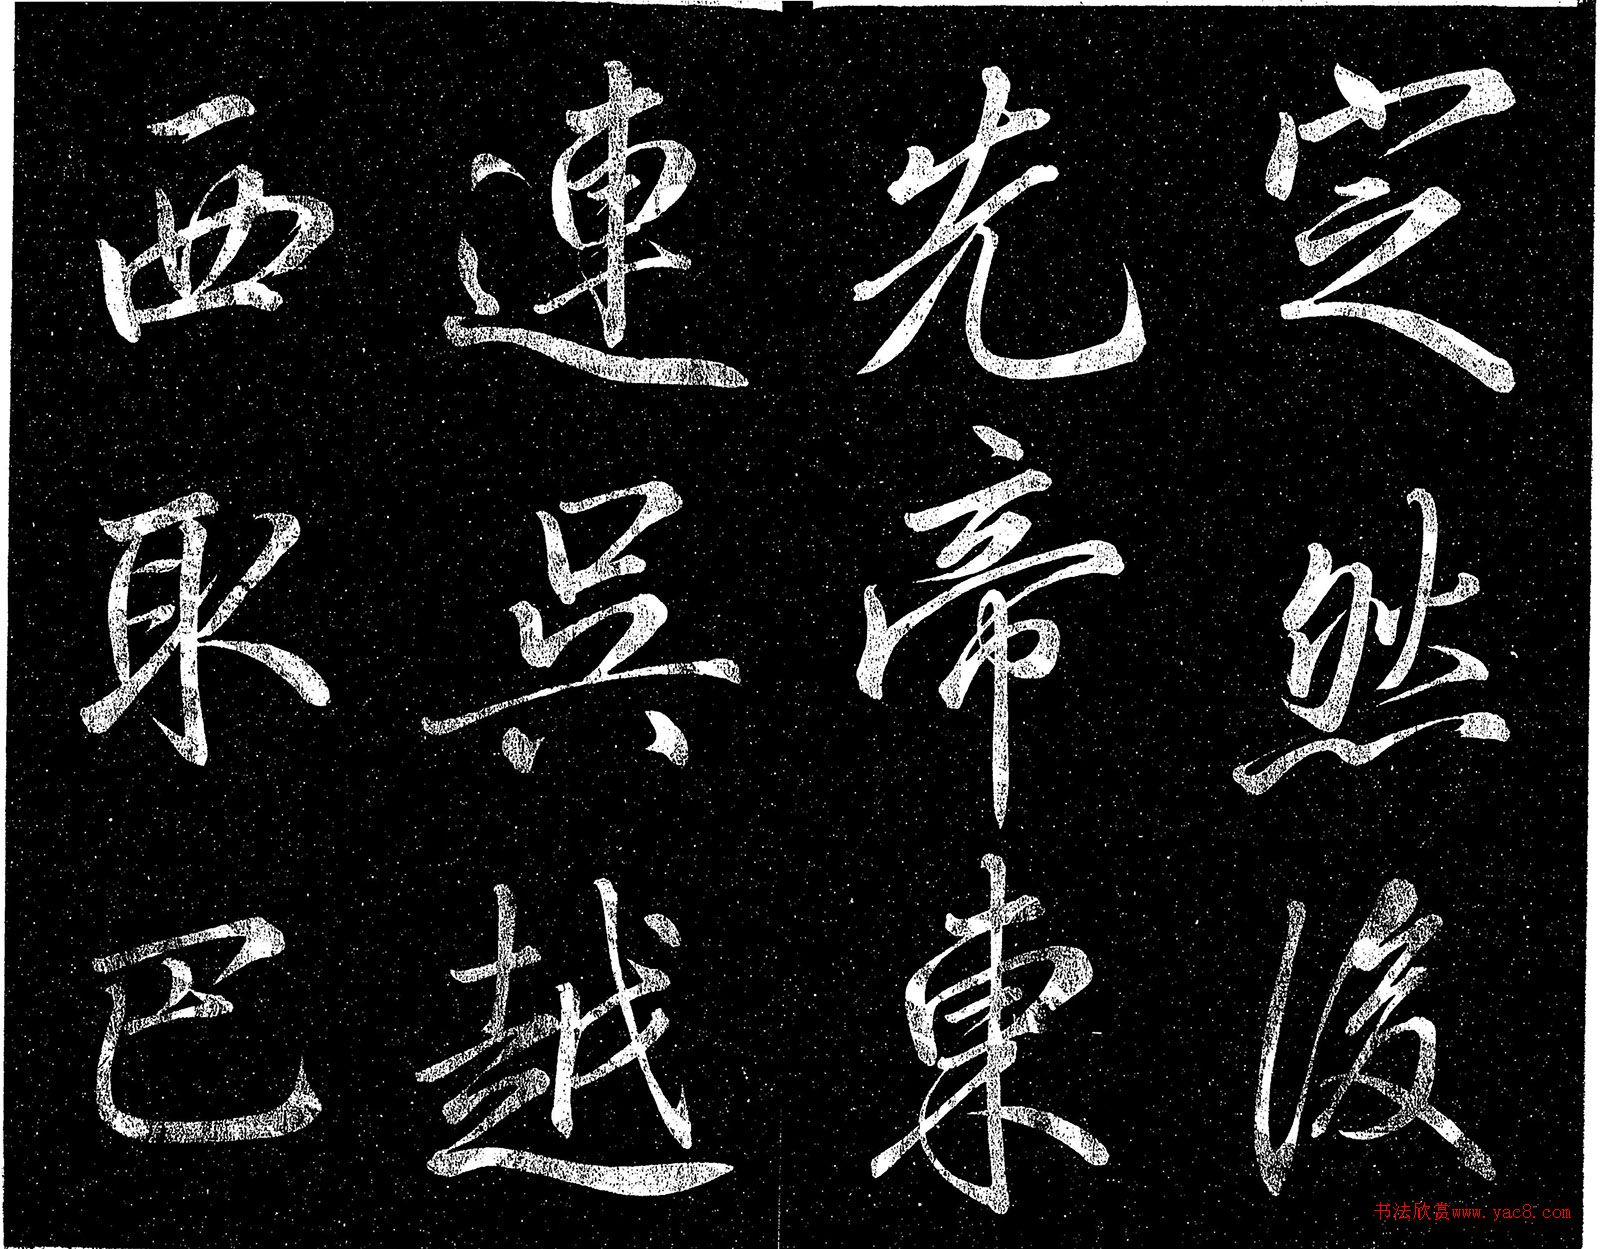 定然後
先帝東
連吳越
西取巴
书法欣赏www.yac8.com